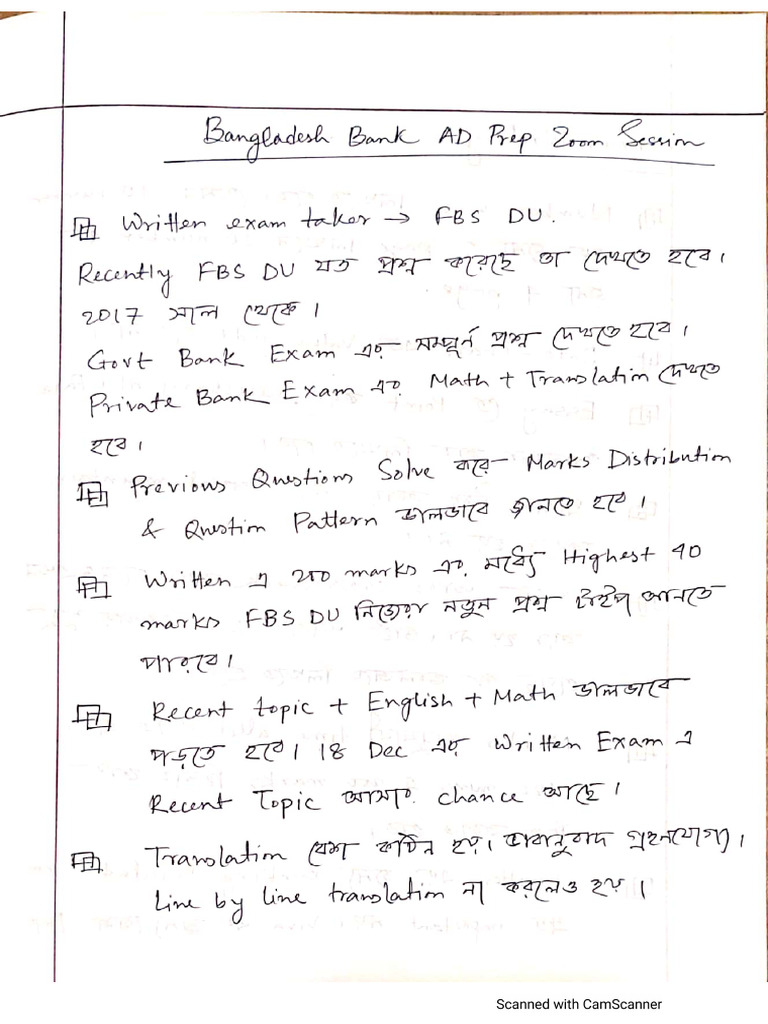 Bangladesh Bank AD Prep Zoom Session
Written exam taker → FBS DU.
Recently FBS DU যত প্রশ্ন করেছে তা দেখতে হবে।
2017 সাল থেকে।
Govt Bank Exam এর সম্পূর্ন প্রশ্ন দেখতে হবে।
Private Bank Exam এর Math + Translation দেখতে
হবে।
Previous Questions Solve করে Marks Distribution
& Question Pattern ভালভাবে জানতে হবে।
Written এ ২০০ marks এর মধ্যে Highest 40
marks FBS DU নিজেরা নতুন প্রশ্ন টাইপ আনতে
পারবে।
Recent topic + English + Math ভালভাবে
পড়তে হবে। 18 Dec এর Written Exam এ
Recent Topic আসার chance আছে।
Translation বেশ কঠিন হয়। ভাবানুবাদ গ্রহনযোগ্য।
Line by line translation না করলেও হয়।
Scanned with CamScanner